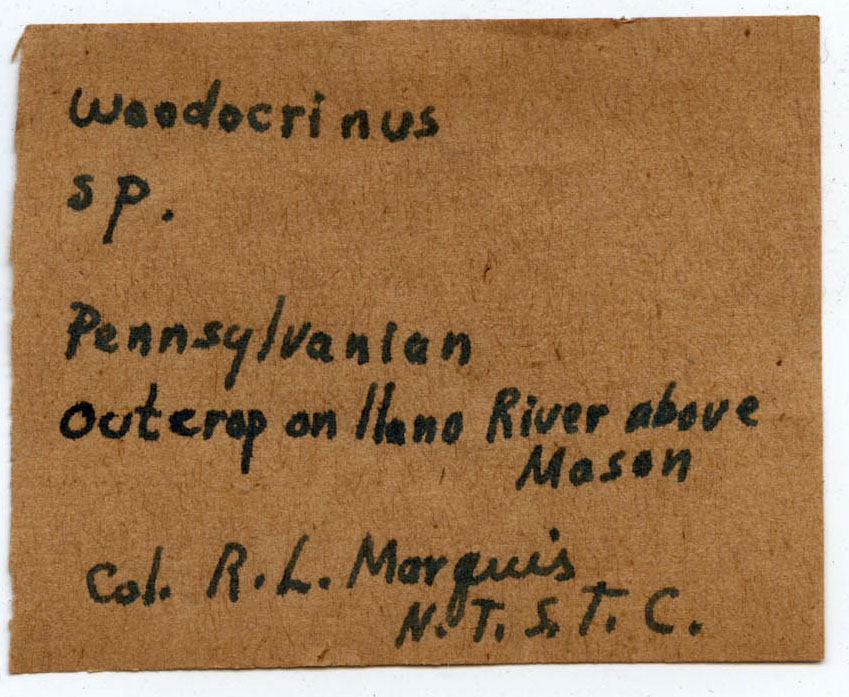 Woodocrinus
sp.
Pennsylvanian
outcrop on llano River above
Mason
Col. R. L. Marquis
N. T. S. T. C.